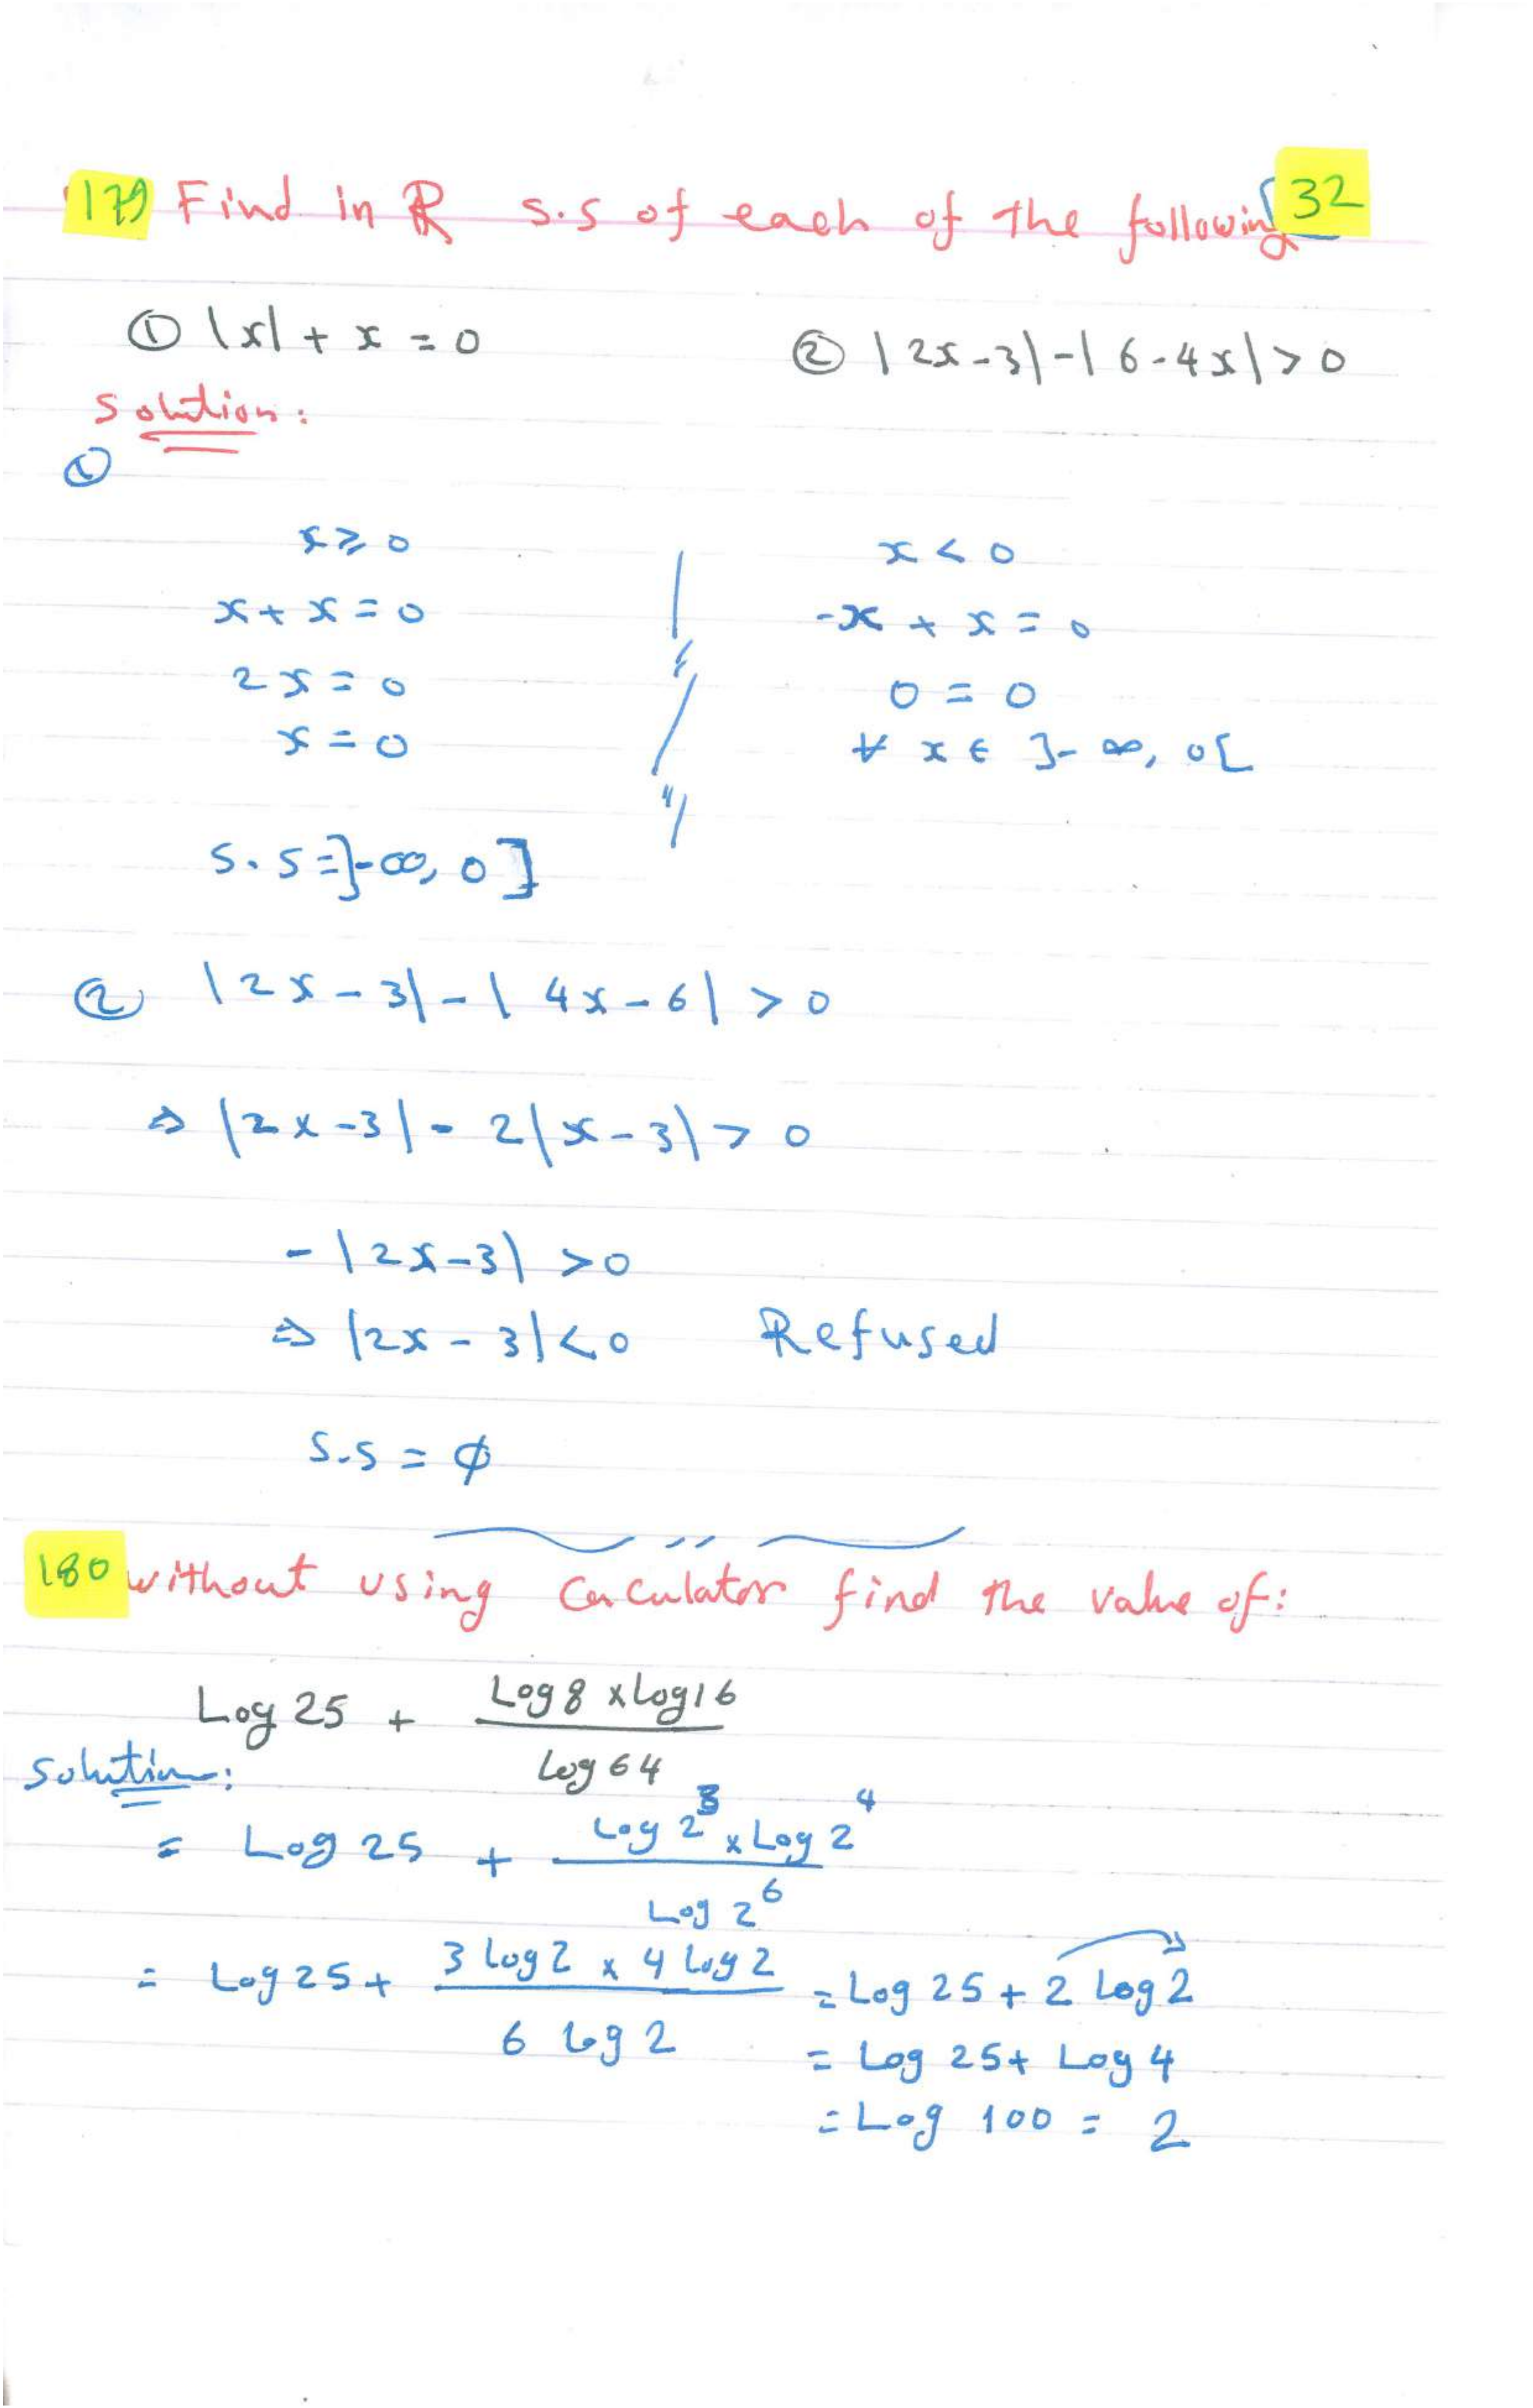 179 Find in R s.s of each of the following 32
① |x| + x = 0 ② |2x-3|-|6-4x|>0
Solution:
①
x≥0 x<0
x+x=0 -x+x=0
2x=0 0=0
x=0 ∀ x ∈ ]-∞, 0[
S.S=]-∞, 0]
② |2x-3|-|4x-6|>0
⇒ |2x-3|-2|x-3|>0
-|2x-3|>0
⇒ |2x-3|<0 Refused
S.S = ϕ
180 without using Caculator find the value of:
Log 25 + (Log 8 x Log 16) / Log 64
Solution:
= Log 25 + (Log 2^3 x Log 2^4) / Log 2^6
= Log 25 + (3 Log 2 x 4 Log 2) / 6 Log 2 = Log 25 + 2 Log 2
= Log 25 + Log 4
= Log 100 = 2